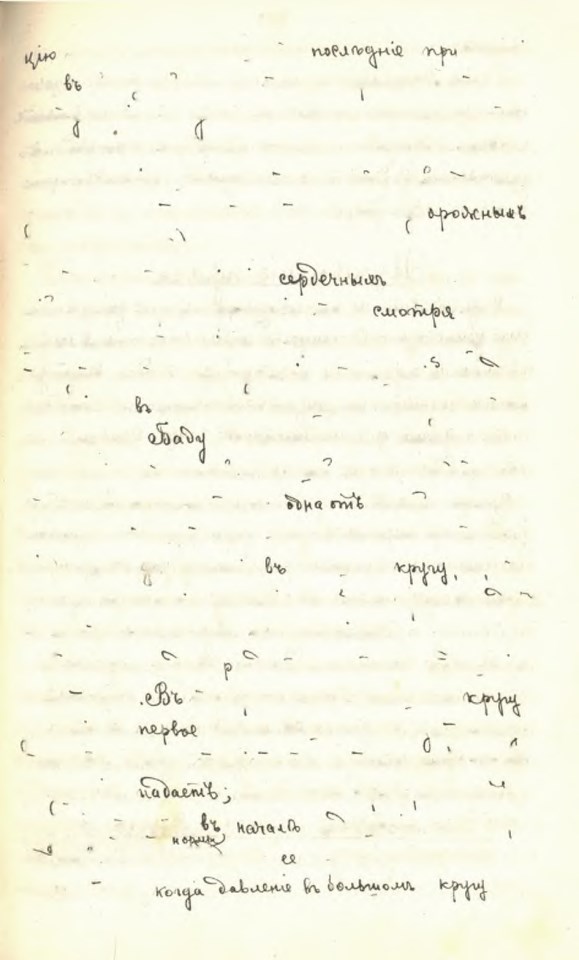 цію послѣдніе при
въ
орожнымъ
сердечнымъ
смотря
въ
одна отъ
въ кругу,
Въ кругу
первое
падаетъ,
въ началѣ
ее
когда давленіе въ большомъ кругу